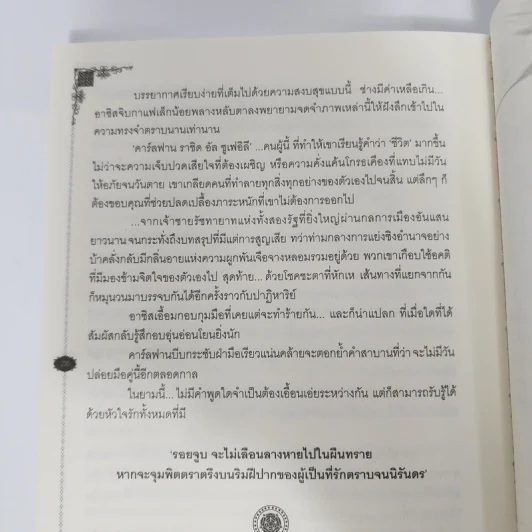 บรรยากาศเรียบง่ายที่เต็มไปด้วยความสงบสุขแบบนี้ ช่างมีค่าเหลือเกิน...
อาซิสจิบกาแฟเล็กน้อยพลางหลับตาลงพยายามจดจำภาพเหล่านี้ให้ฝังลึกเข้าไปใน
ความทรงจำตราบนานเท่านาน
'คาร์ลฟาน ราชิด อัล ซูเฟอีลี' ...คนผู้นี้ ที่ทำให้เขาเรียนรู้คำว่า 'ชีวิต' มากขึ้น
ไม่ว่าจะความเจ็บปวดเสียใจที่ต้องเผชิญ หรือความคั่งแค้นโกรธเคืองที่แทบไม่มีวัน
ให้อภัยจนวันตาย เขาเกลียดคนที่ทำลายทุกสิ่งทุกอย่างของตัวเองไปจนสิ้น แต่ลึกๆ ก็
ต้องขอบคุณที่ช่วยปลดเปลื้องภาระหนักที่เขาไม่ต้องการออกไป
...จากเจ้าชายรัชทายาทแห่งทั้งสองรัฐที่ยิ่งใหญ่ผ่านกลการเมืองอันแสน
ยาวนาน จนกระทั่งถึงบทสรุปที่มีแต่การสูญเสีย ทว่าท่ามกลางการแย่งชิงอำนาจอย่าง
บ้าคลั่งกลับมีกลิ่นอายแห่งความผูกพันเจือจางหลอมรวมอยู่ด้วย พวกเขาเกือบใช้อคติ
ที่มีมองข้ามจิตใจของตัวเองไป สุดท้าย... ด้วยโชคชะตาที่หักเห เส้นทางที่แยกจากกัน
ก็หมุนวนมาบรรจบกันได้อีกครั้งราวกับปาฏิหาริย์
อาซิสเอื้อมกอบกุมมือที่เคยแต่จะทำร้ายกัน... และก็น่าแปลก ที่เมื่อใดที่ได้
สัมผัสกลับรู้สึกอบอุ่นอ่อนโยนยิ่งนัก
คาร์ลฟานบีบกระชับฝ่ามือเรียวแน่นคล้ายจะตอกย้ำคำสาบานที่ว่า จะไม่มีวัน
ปล่อยมือคู่นี้อีกตลอดกาล
ในยามนี้... ไม่มีคำพูดใดจำเป็นต้องเอื้อนเอ่ยระหว่างกัน แต่ก็สามารถรับรู้ได้
ด้วยหัวใจรักทั้งหมดที่มี
'รอยจูบ จะไม่เลือนลางหายไปในผืนทราย
หากจะจุมพิตตราตรึงบนริมฝีปากของผู้เป็นที่รักตราบจนนิรันดร'